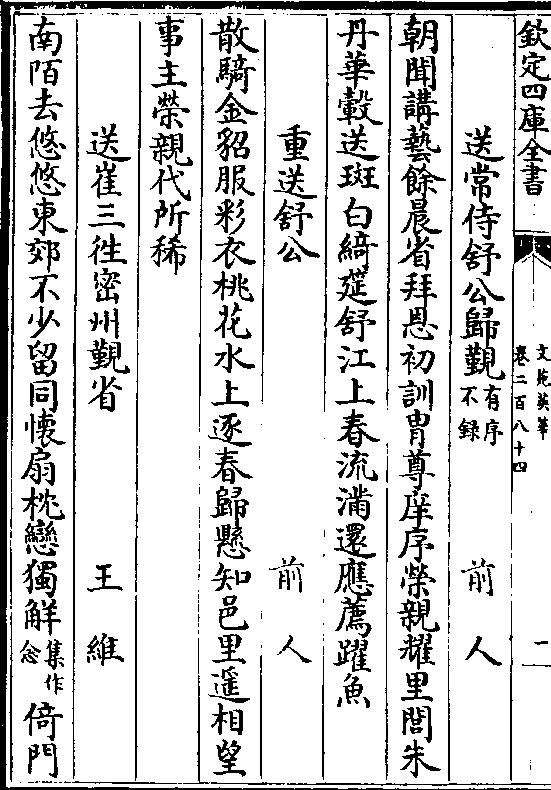 欽定四庫全書
文苑英華
卷二百八十四
二
送常侍舒公歸覲有序不録 前人
朝聞講藝餘晨省拜恩初訓胄尊庠序榮親耀里閭朱
丹華轂送斑白綺筵舒江上春流滿還應薦躍魚
重送舒公 前人
散騎金貂服彩衣桃花水上逐春歸懸知邑里遥相望
事主榮親代所稀
送崔三徃密州覲省 王維
南陌去悠悠東郊不少留同懷扇枕戀獨解集作念倚門